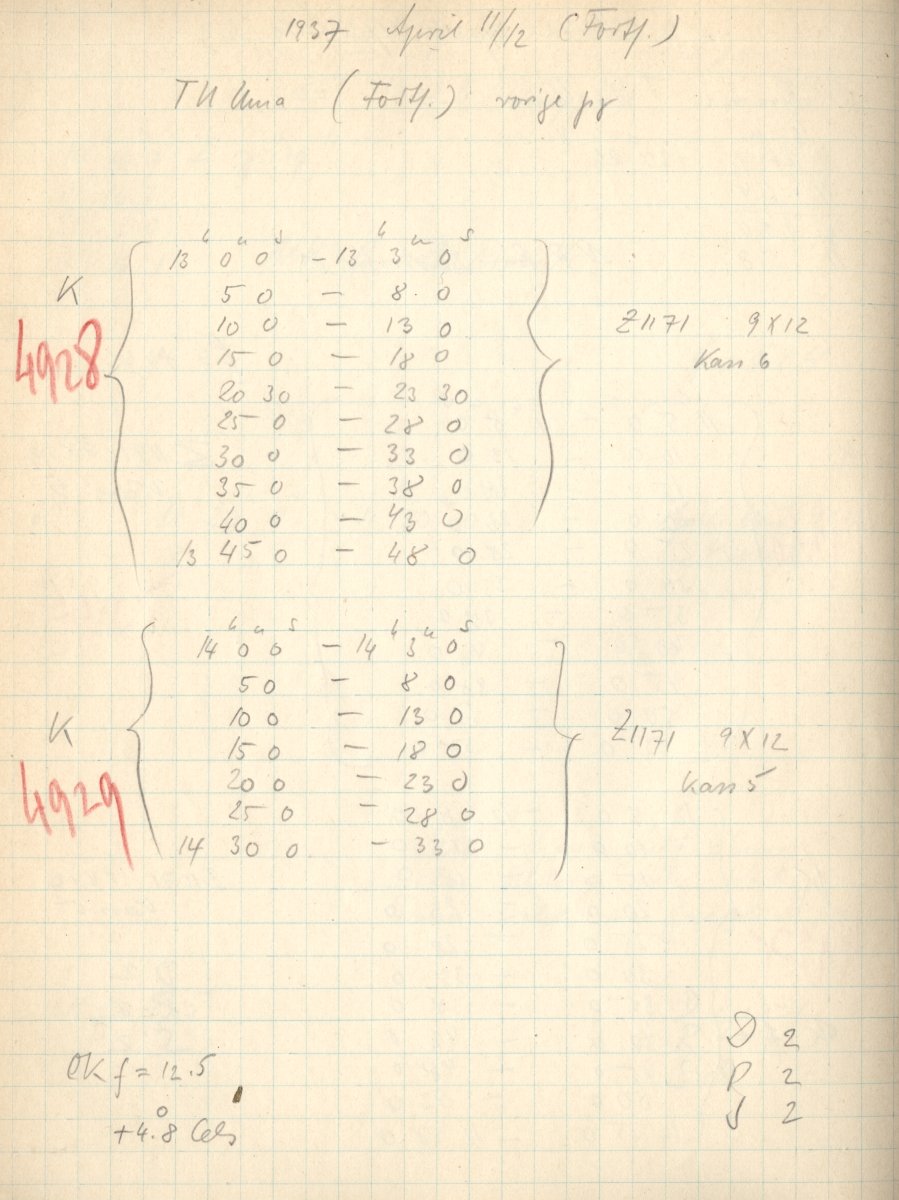 1937 April 11/12 (Forts.)
TU UMa (Forts.) vorige pg
13h 0m 0s – 13h 3m 0s
5 0 – 8 0
10 0 – 13 0
15 0 – 18 0
20 30 – 23 30
25 0 – 28 0
30 0 – 33 0
35 0 – 38 0
40 0 – 43 0
13 45 0 – 48 0
K
4928
Z1171 9X12
Kass 6
14h 0m 0s – 14h 3m 0s
5 0 – 8 0
10 0 – 13 0
15 0 – 18 0
20 0 – 23 0
25 0 – 28 0
14 30 0 – 33 0
K
4929
Z1171 9X12
Kass 5
OK f = 12.5
+4.8° Cels
D 2
P 2
S 2